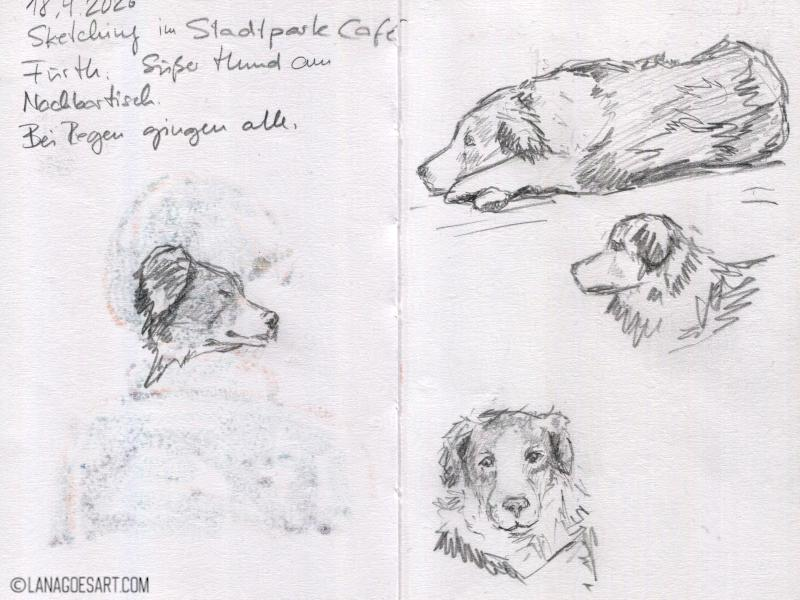 18.4.2026
Sketching im Stadtpark Café
Fürth. Süßer Hund am
Nachbartisch.
Bei Regen gingen alle.
©LANAGOESART.COM